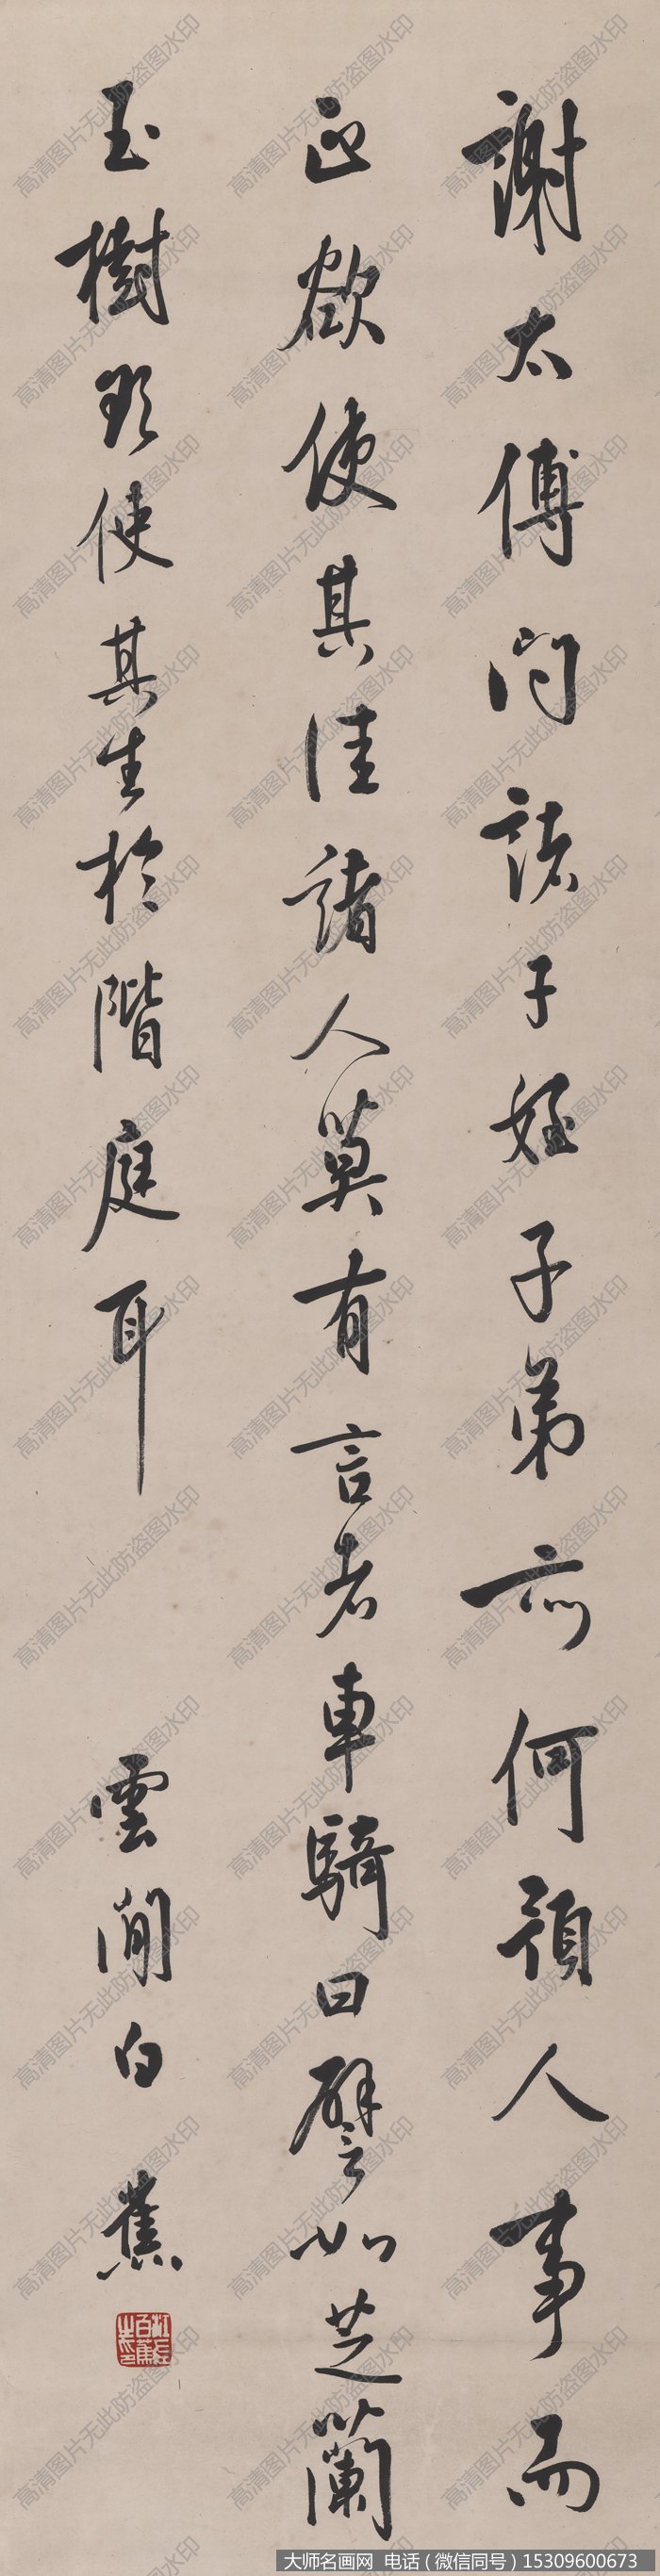 謝太傅問諸子姪子弟亦何預人事而
正欲使其佳諸人莫有言者車騎曰譬如芝蘭
玉樹欲使其生於階庭耳
雲間白蕉
高清图片无此防盗图水印
大师名画网 电话（微信同号）15309600673